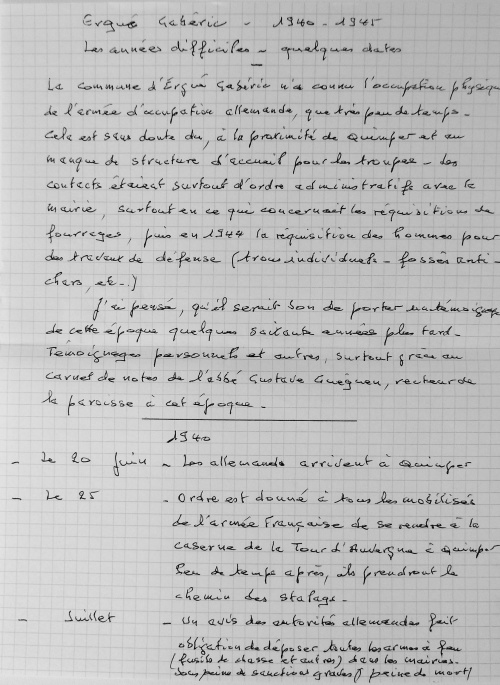 Ergué Gabéric - 1940 - 1945
Les années difficiles - quelques dates
La commune d'Ergué Gabéric n'a connu l'occupation physique
de l'armée d'occupation allemande, que très peu de temps.
Cela est sans doute du, à la proximité de Quimper et au
manque de structure d'accueil pour les troupes - Les
contacts étaient surtout d'ordre administratifs avec la
mairie, surtout en ce qui concernait les réquisitions de
fourrages, puis en 1944 la réquisition des hommes pour
des travaux de défense (trous individuels - fossés anti-
chars, etc..)
J'ai pensé, qu'il serait bon de porter un témoignage
de cette époque quelques soixante années plus tard -
Témoignages personnels et autres, surtout grace au
carnet de notes de l'abbé Gustave Guéguen, recteur de
la paroisse à cet époque -
1940
- Le 20 Juin - Les allemands arrivent à Quimper
- Le 25 - Ordre est donné à tous les mobilisés
de l'armée Française de se rendre à la
caserne de la Tour d'Auvergne à Quimper
Peu de temps après, ils prendront le
chemin des stalags -
- Juillet - Un avis des autorités allemandes fait
obligation de déposer toutes les armes à feu
(fusils de chasse et autres) dans les mairies.
Sous peine de sanctions graves (peine de mort)